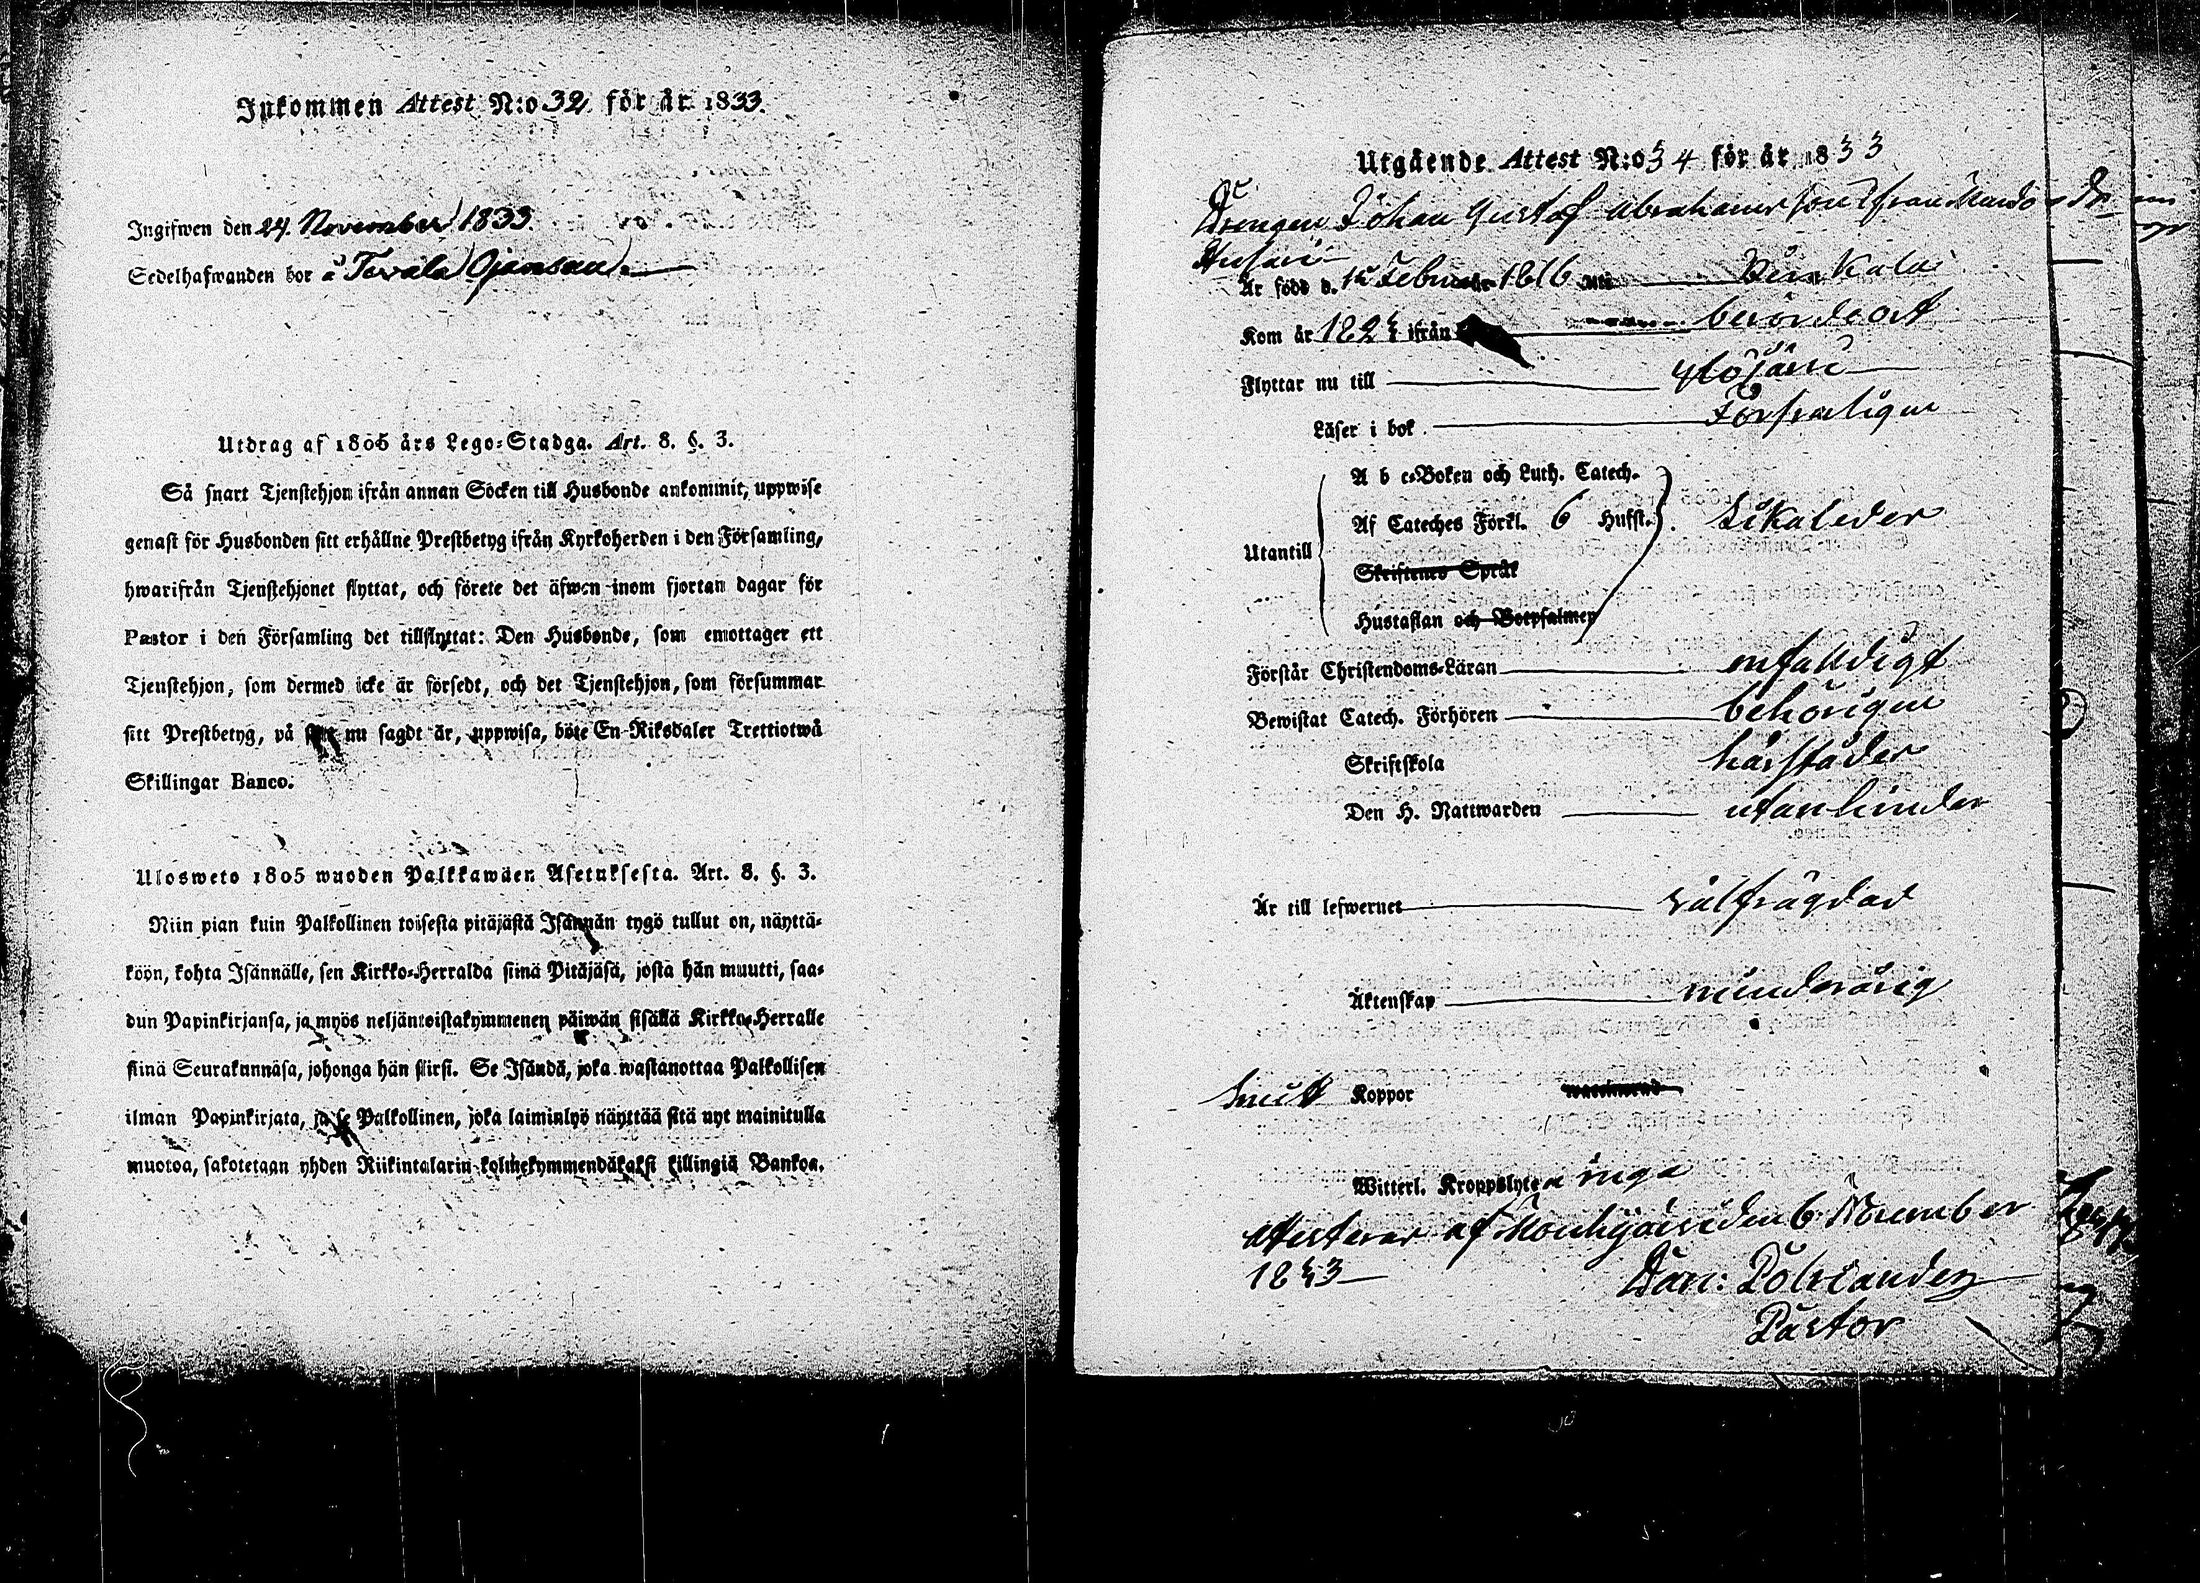 Inkommen Attest N:o 32 för år 1833.
Ingifwen den 24 November 1833.
Sedelhafwanden bor å Tevala Ojansuu
Utdrag af 1805 års Lego-Stadga. Art. 8. §. 3.
Så snart Tjenstehjon ifrån annan Socken till Husbonde ankommit, uppwise
genast för Husbonden sitt erhållne Prestbetyg ifrån Kyrkoherden i den Församling,
hwarifrån Tjenstehjonet flyttat, och förete det äfwen inom fjortan dagar för
Pastor i den Församling det tillflyttat: Den Husbonde, som emottager ett
Tjenstehjon, som dermed icke är försedt, och det Tjenstehjon, som försummar
sitt Prestbetyg, på sätt nu sagdt är, uppwisa, böte En Riksdaler Trettiotwå
Skillingar Banco.
Ulosweto 1805 wuoden Palkkawäen Asetuksesta. Art. 8. §. 3.
Niin pian kuin Palkollinen toisesta pitäjästä Isännän tygö tullut on, näyttä-
köön, kohta Isännälle, sen Kirkko-Herralda siinä Pitäjäsä, josta hän muutti, saa-
dun Papinkirjansa, ja myös neljäntoistakymmenen päiwän sisällä Kirkko-Herralle
siinä Seurakunnasa, johonga hän siirsi. Se Isändä, joka wastanottaa Palkollisen
ilman Papinkirjata, ja se Palkollinen, joka laiminlyö näyttää sitä nyt mainitulla
muotoa, sakotetaan yhden Riikintalarin kolmekymmendäkaksi killingiä Bankoa.
Utgående Attest N:o 34 för år 1833
Drengen Johan Gustaf Abrahamsson ifrån
Är född d. 15 Februar 1816
Kom år ifrån
Flyttar nu till
Läser i bok Förswarligen
A b c-Boken och Luth. Catech.
Af Cateches Förkl. 6 Hufst. likaledes
Utantill
Skriftenes Språk
Hustaflan och Botpsalmer
Förstår Christendoms-Läran enfaldigt
Bewistat Catech. Förhören behörigen
Skriftskola härstädes
Den H. Nattwarden utan hinder
Är till lefwernet wälfrägdad
Äktenskap minderårig
haft Koppor
Witterl. Kroppslyten inga
Attesterar af Mouhijärvi den 6 November
1833 Dan: Polviander
Pastor